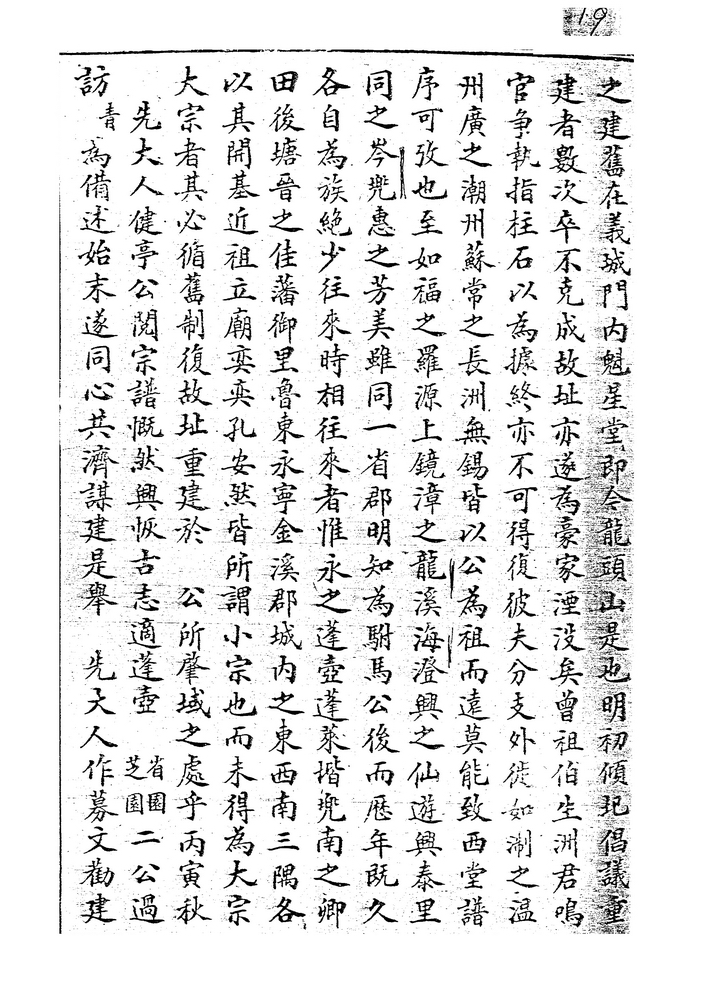 19
之建舊在義城門内魁星堂即今龍頭山是也明初傾圮倡議重
建者數次卒不克成故址亦遂為豪家湮没矣曾祖伯生洲君鳴
官爭執指柱石以為據終亦不可得復彼夫分支外徙如浙之温
州廣之潮州蘇常之長洲無錫皆以公為祖而遠莫能致西堂譜
序可攷也至如福之羅源上鏡漳之龍溪海澄興之仙遊興泰里
同之岑兠惠之芳美雖同一省郡明知為駙馬公後而歷年既久
各自為族絶少往來時相往來者惟永之蓬壺蓬萊堦兠南之卿
田後塘晉之佳藩御里魯東永寧金溪郡城内之東西南三隅各
以其開基近祖立廟奕奕孔安然皆所謂小宗也而未得為大宗
大宗者其必循舊制復故址重建於 公所肇域之處乎丙寅秋
先大人健亭公閱宗譜慨然興恢古志適蓬壺 省園芝園二公過
訪 青為備述始末遂同心共濟謀建是舉 先大人作募文勸建